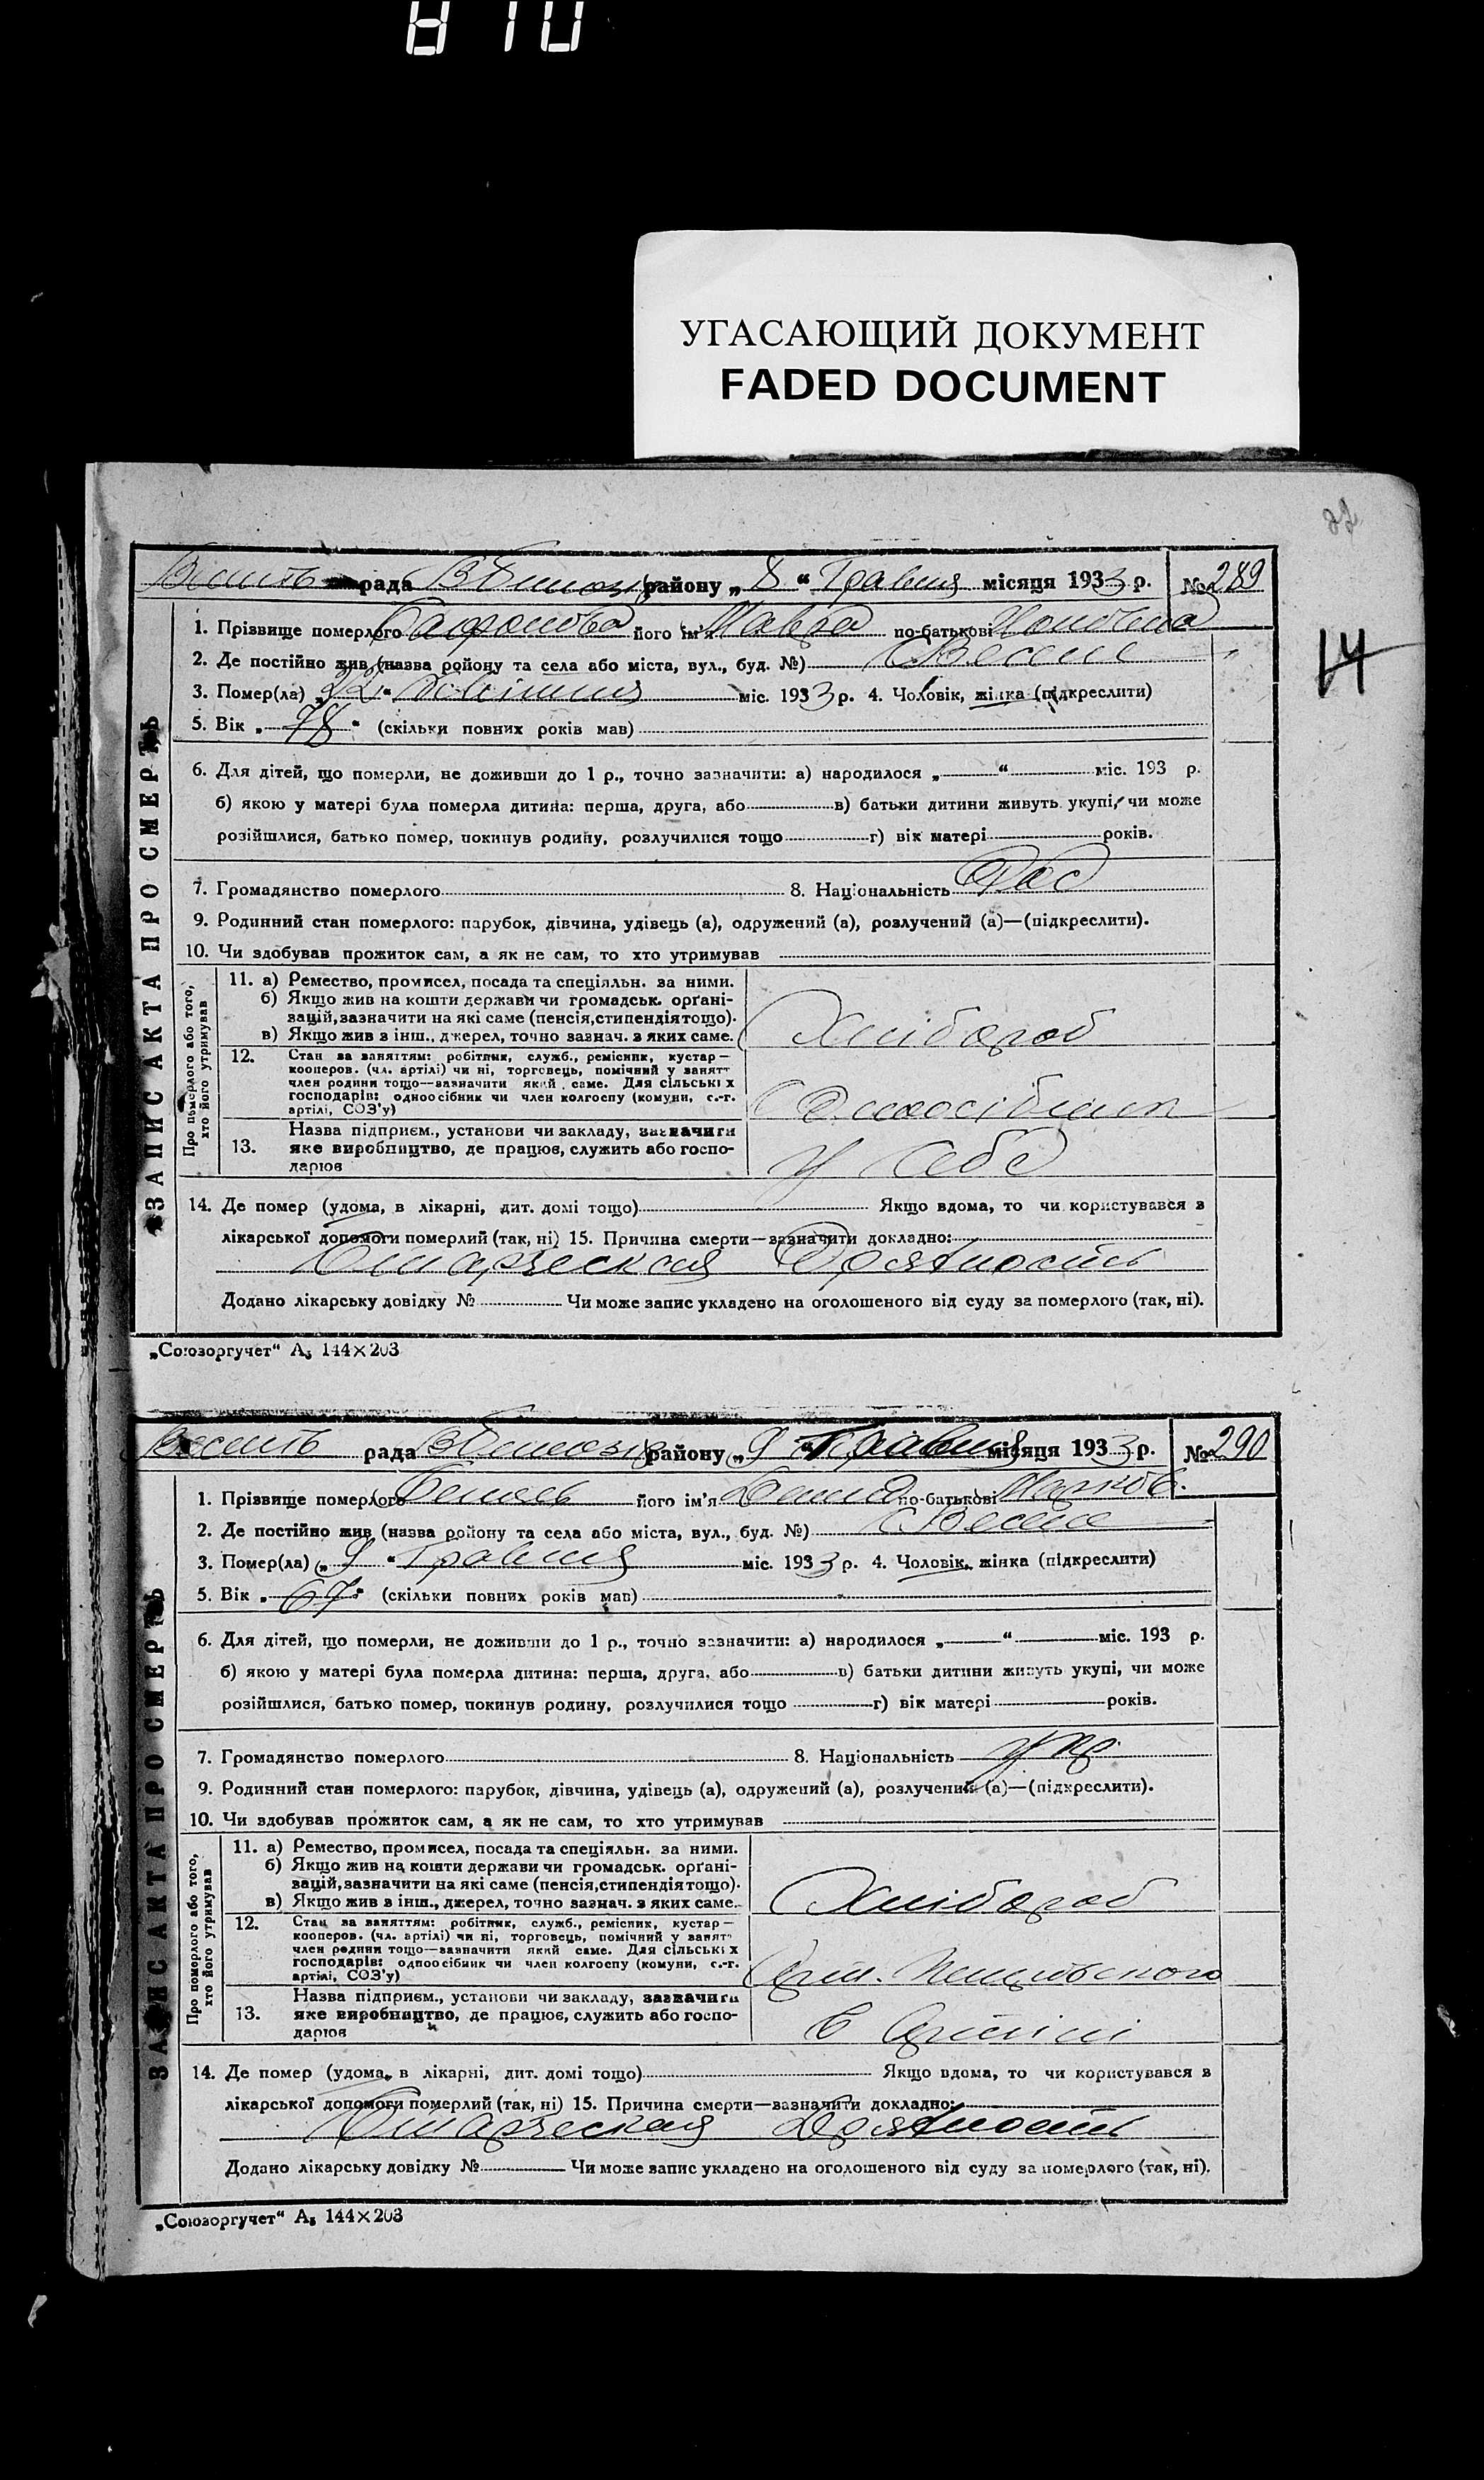 УГАСАЮЩИЙ ДОКУМЕНТ
FADED DOCUMENT
рада району „ 8 “ Травня місяця 1933 р. № 289
14
1. Прізвище померлого його ім'я Мавра по-батькові
2. Де постійно жив (назва району та села або міста, вул., буд. №) с Веселе
3. Помер(ла) „ 22 “ міс. 1933 р. 4. Чоловік, жінка (підкреслити)
5. Вік „ 78 “ (скільки повних років мав)
6. Для дітей, що померли, не доживши до 1 р., точно зазначити: а) народилося „ “ міс. 193 р.
б) якою у матері була померла дитина: перша, друга, або в) батьки дитини живуть укупі, чи може
розійшлися, батько помер, покинув родину, розлучилися тощо г) вік матері років.
7. Громадянство померлого 8. Національність Рос
9. Родинний стан померлого: парубок, дівчина, удівець (а), одружений (а), розлучений (а)—(підкреслити).
10. Чи здобував прожиток сам, а як не сам, то хто утримував
ЗАПИС АКТА ПРО СМЕРТЬ
Про померлого або того,
хто його утримував
11. а) Ремество, промисел, посада та спеціяльн. за ними.
б) Якщо жив на кошти держави чи громадськ. орґані-
зацій, зазначити на які саме (пенсія, стипендія тощо).
в) Якщо жив з інш., джерел, точно зазнач. з яких саме. Хлібороб
12. Стан за заняттям: робітник, служб., ремісник, кустар—
кооперов. (чл. артілі) чи ні, торговець, помічний у занятт
член родини тощо—зазначити який саме. Для сільськіх
господарів: одноосібник чи член колгоспу (комуни, с.-г.
артілі, СОЗ'у) Одноосібник
13. Назва підприєм., установи чи закладу, зазначити
яке виробництво, де працює, служить або госпо-
дарює У себе
14. Де помер (удома, в лікарні, дит. домі тощо) Якщо вдома, то чи користувався з
лікарської допомоги померлий (так, ні) 15. Причина смерти—зазначити докладно:
Старческая Дряхлость
Додано лікарську довідку № Чи може запис укладено на оголошеного від суду за померлого (так, ні).
„Союзоргучет“ А₅ 144×203
рада району „ 9 “ Травня місяця 1933 р. № 290
1. Прізвище померлого його ім'я по-батькові Марков.
2. Де постійно жив (назва району та села або міста, вул., буд. №) с Веселе
3. Помер(ла) „ 9 “ Травня міс. 1933 р. 4. Чоловік, жінка (підкреслити)
5. Вік „ 67 “ (скільки повних років мав)
6. Для дітей, що померли, не доживши до 1 р., точно зазначити: а) народилося „ “ міс. 193 р.
б) якою у матері була померла дитина: перша, друга, або в) батьки дитини живуть укупі, чи може
розійшлися, батько помер, покинув родину, розлучилися тощо г) вік матері років.
7. Громадянство померлого 8. Національність укр
9. Родинний стан померлого: парубок, дівчина, удівець (а), одружений (а), розлучений (а)—(підкреслити).
10. Чи здобував прожиток сам, а як не сам, то хто утримував
ЗАПИС АКТА ПРО СМЕРТЬ
Про померлого або того,
хто його утримував
11. а) Ремество, промисел, посада та спеціяльн. за ними.
б) Якщо жив на кошти держави чи громадськ. орґані-
зацій, зазначити на які саме (пенсія, стипендія тощо).
в) Якщо жив з інш., джерел, точно зазнач. з яких саме. Хлібороб
12. Стан за заняттям: робітник, служб., ремісник, кустар—
кооперов. (чл. артілі) чи ні, торговець, помічний у занятт
член родини тощо—зазначити який саме. Для сільськіх
господарів: одноосібник чи член колгоспу (комуни, с.-г.
артілі, СОЗ'у)
13. Назва підприєм., установи чи закладу, зазначити
яке виробництво, де працює, служить або госпо-
дарює В Артілі
14. Де помер (удома, в лікарні, дит. домі тощо) Якщо вдома, то чи користувався з
лікарської допомоги померлий (так, ні) 15. Причина смерти—зазначити докладно:
Старческая Дряхлость
Додано лікарську довідку № Чи може запис укладено на оголошеного від суду за померлого (так, ні).
„Союзоргучет“ А₅ 144×203